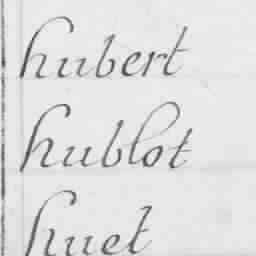 hubert
hublot
huet